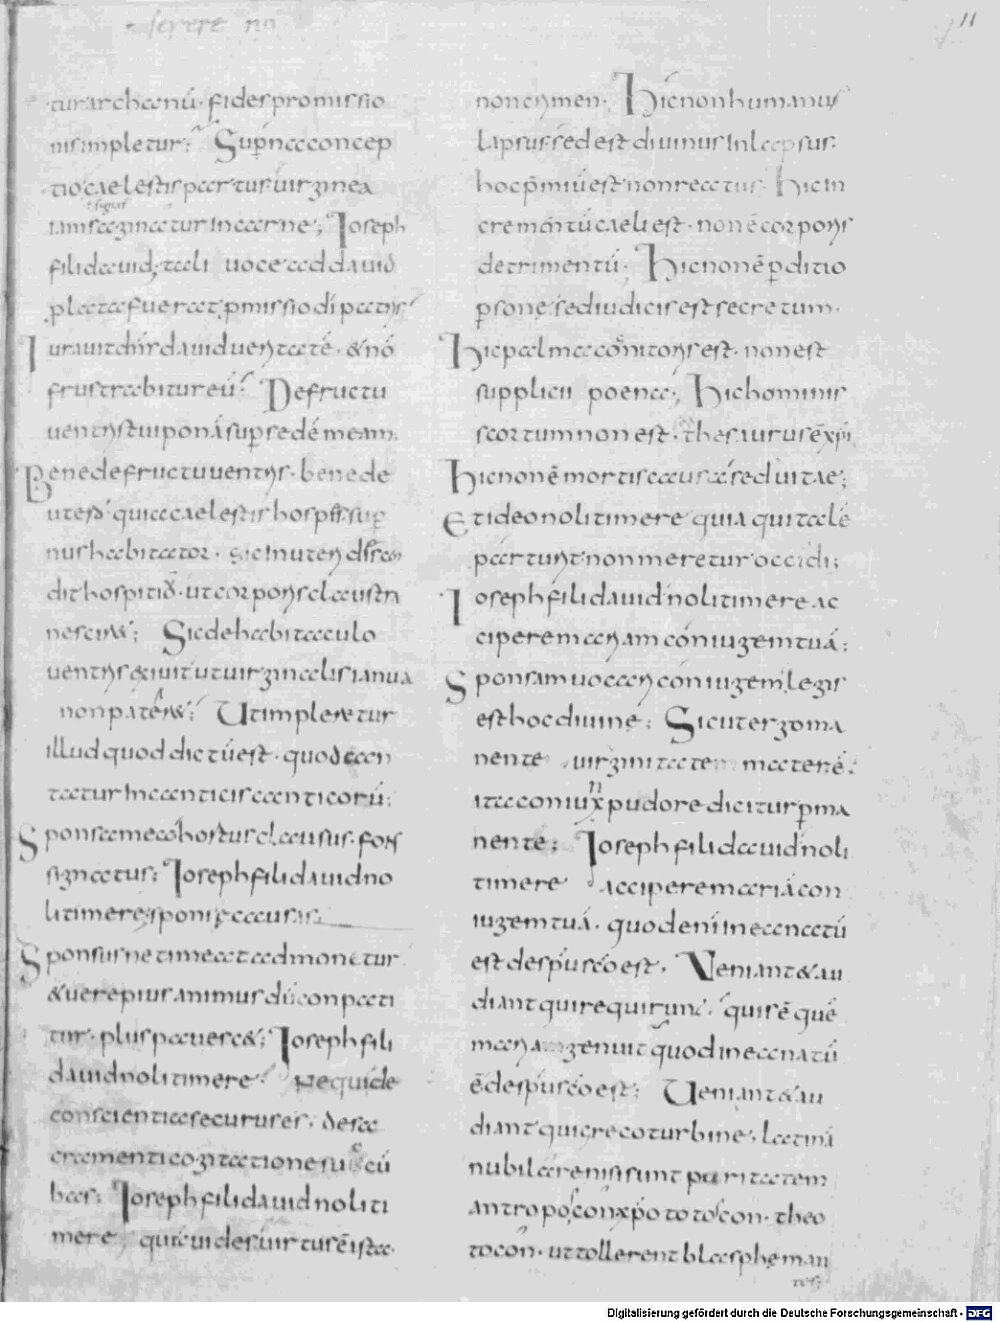 11
tur archanū. fides promissio
nis impletur; Supna concep
tio caelestis partus uirginea
iam sa gina tur In carne; Ioseph
fili dauid; tali uoce ad dauid
pla ta fuerat pmissio di patris
Iurauit dns dauid ueritatē. & nō
frustrabitur eū; De fructu
uentris tui ponā sup sedē meam.
Bene de fructu uentris. bene de
utero qui caelestis hospes sup
nus habitator. sic In uterū
dit hospitiū. ut corporis claustra
nesciret; Sic de habitaculo
uentris exiuit ut uirginalis ianua
non pateret; Ut impleretur
illud quod dictū est. quod can
tatur In canticis canticorū;
Sponsa mea hortus clausus. fons
signatus; Ioseph fili dauid no
li timere sponse causas.
Sponsus ne timeat admonetur
& uere pius animus dū conpati
tur. plus paueret; Ioseph fili
dauid noli timere. Ne quide
conscientia securus es. de sa
cramenti cogitatione sucū
bas; Ioseph fili dauid noli ti
mere quē uides uirtus ē ista.
non crimen. Hic non humanus
lapsus sed est diuinus Inlapsus.
hoc pmiū est non reatus. Hic in
crementū caeli est. non ē corporis
detrimentū. Hic non ē pditio
psone sed iudicis est secretum.
Hic palma cōmitoris est. non est
supplicii poena; Hic hominis
scortum non est. thesaurus ē xpi
Hic non ē mortis causa sed uitae;
Et ideo noli timere quia qui talē
parturit non meretur occidi;
Ioseph fili dauid noli timere ac
cipere mariam cōniugem tuā;
Sponsam uocari cōniugem legis
est hoc diuine; Sicut ergo ma
nente uirginitate materē.
ita coniunx pudore dicitur pma
nente; Ioseph fili dauid noli
timere accipere mariā con
iugem tuā. quod enī in ea natū
est de spu sco est. Veniant & au
diant qui requirunt. quis ē quē
maria genuit quod in ea natū
ē de spu sco est; Ueniant & au
diant qui greco turbine. latinā
nubilare nisi sunt puritatem
antropo conxpo totocon. theo
tocon. ut tollerent blaspheman
tes;
Digitalisierung gefördert durch die Deutsche Forschungsgemeinschaft - DFG